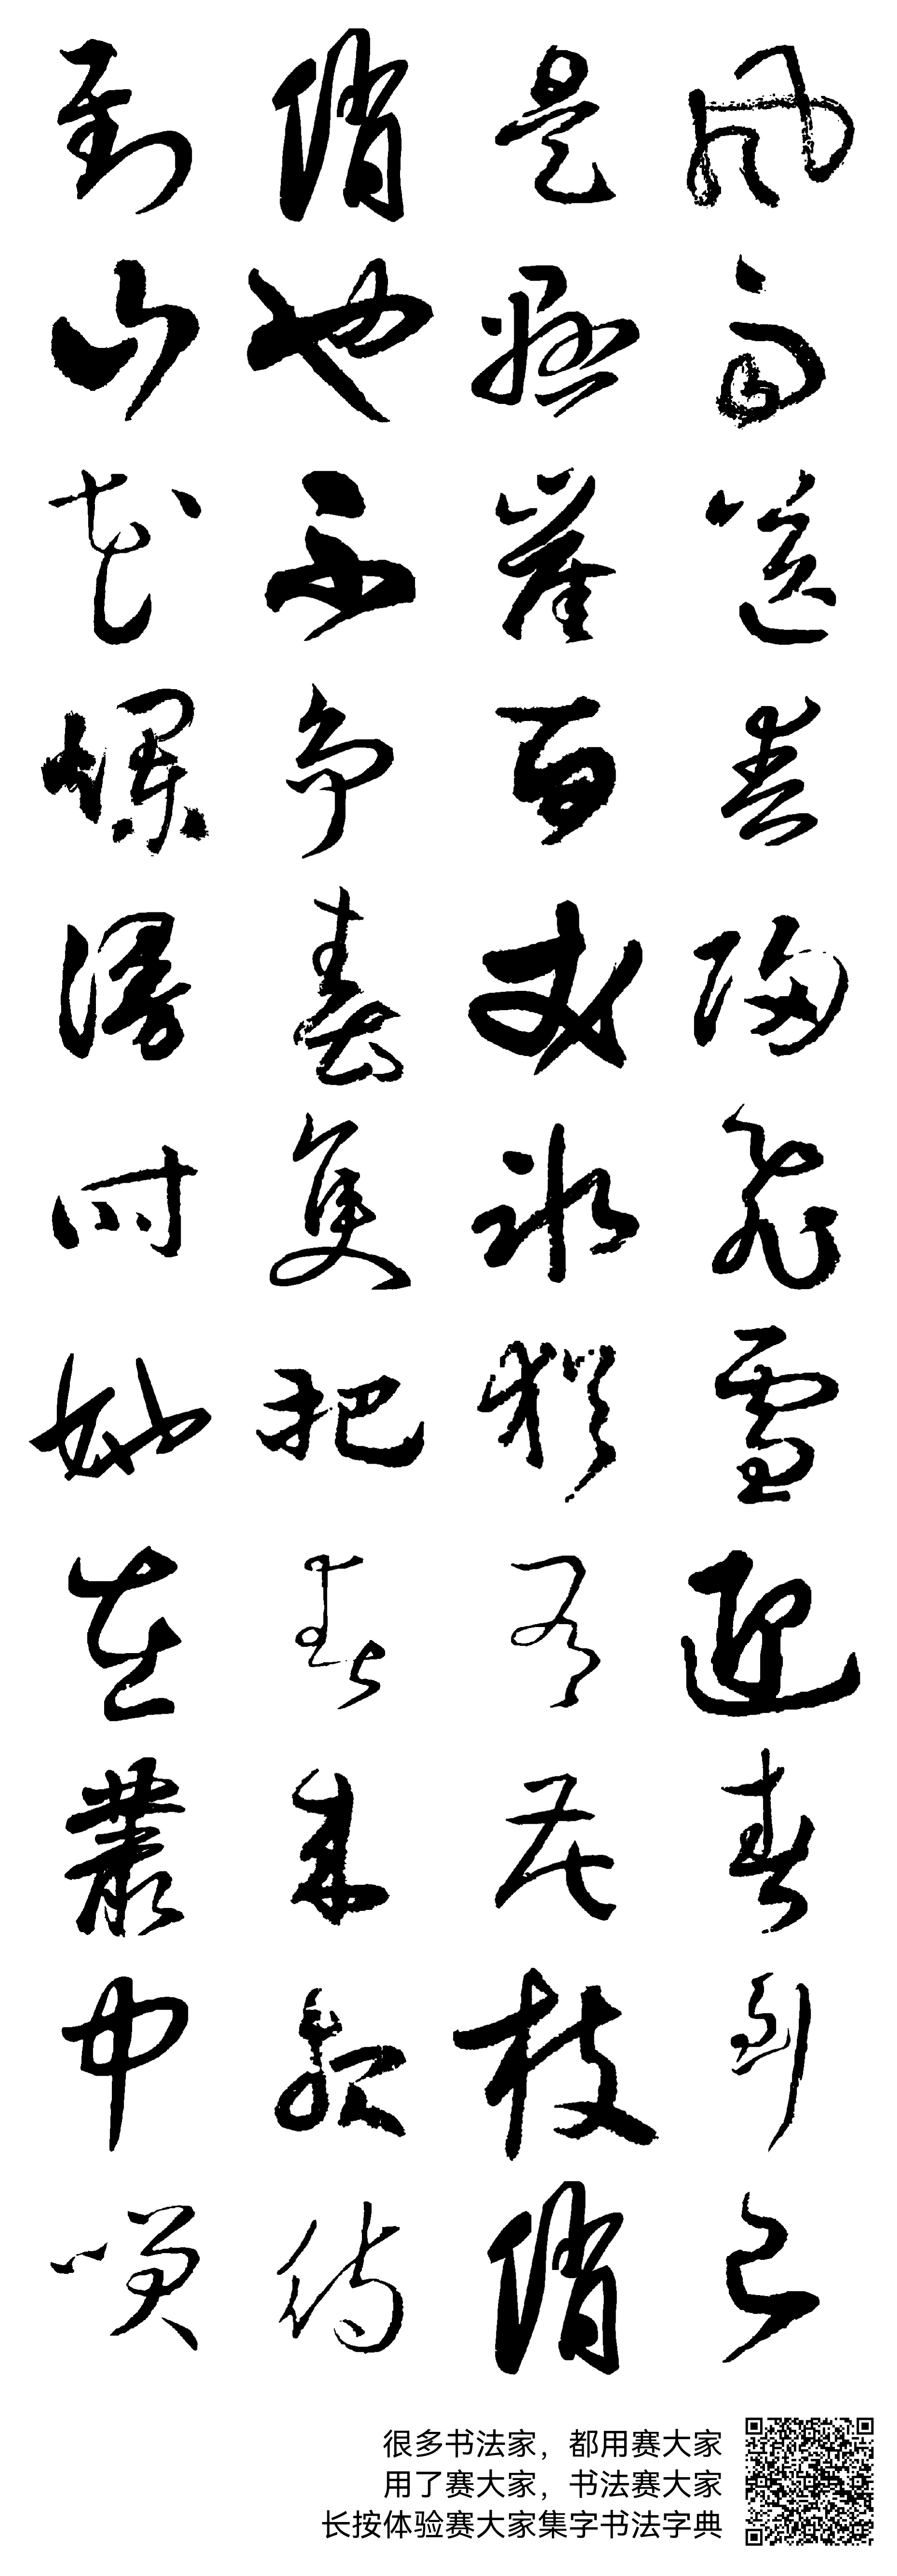 风雨送春归飞雪迎春到已
是悬崖百丈冰犹有花枝俏
俏也不争春隻把春来报待
到山花烂漫时她在叢中笑
很多书法家，都用赛大家
用了赛大家，书法赛大家
长按体验赛大家集字书法字典